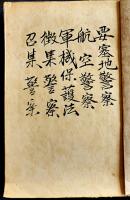 要塞地警察
航空警察
軍機保護法
徴集警察
召集警察